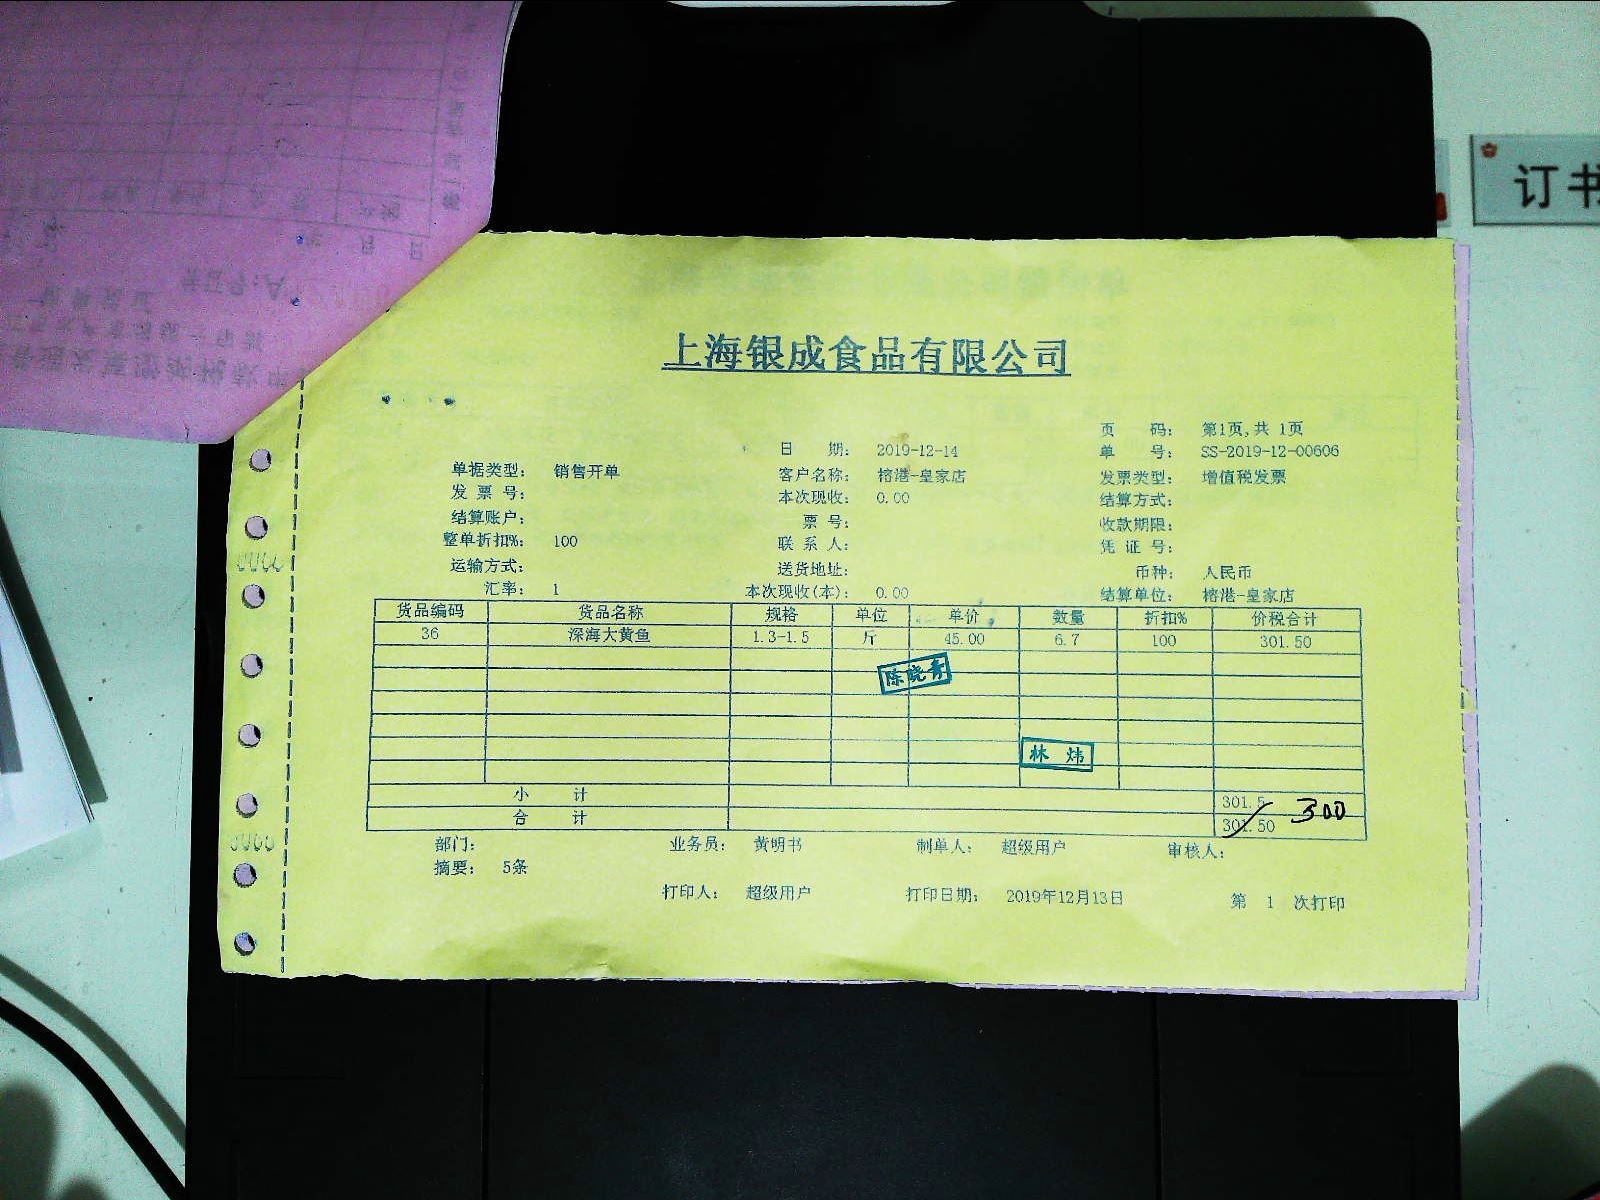 订书
上海银成食品有限公司
页 码: 第1页,共 1页
日 期: 2019-12-14 单 号: SS-2019-12-00606
单据类型: 销售开单 客户名称: 榕港-皇家店 发票类型: 增值税发票
发 票 号: 本次现收: 0.00 结算方式:
结算账户: 票 号: 收款期限:
整单折扣%: 100 联 系 人: 凭 证 号:
运输方式: 送货地址: 币种: 人民币
汇率: 1 本次现收(本): 0.00 结算单位: 榕港-皇家店
货品编码 货品名称 规格 单位 单价 数量 折扣% 价税合计
36 深海大黄鱼 1.3-1.5 斤 45.00 6.7 100 301.50
陈晓青
林 炜
小 计 301.5 300
合 计 301.50
部门: 业务员: 黄明书 制单人: 超级用户 审核人:
摘要: 5条
打印人: 超级用户 打印日期: 2019年12月13日 第 1 次打印